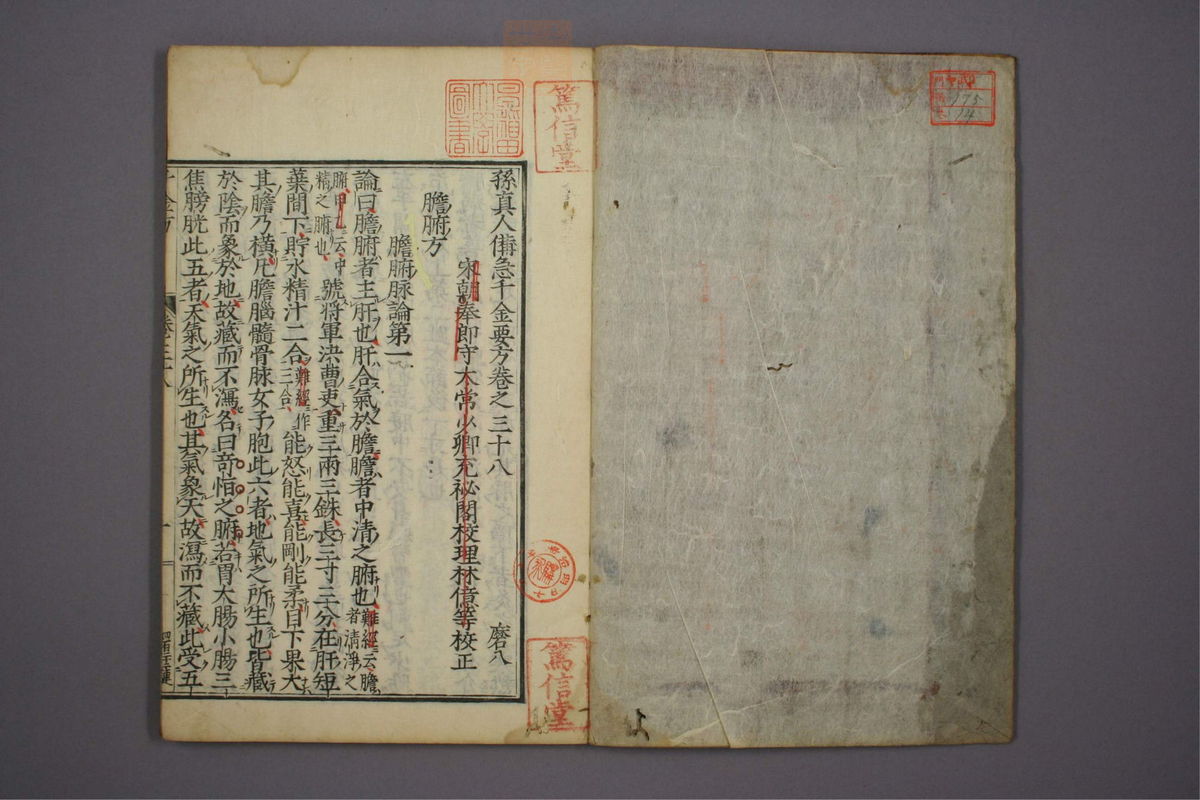 孫真人備急千金要方卷之三十八 磨八
宋朝奉郎守太常少卿充祕閣校理林億等校正
膽腑方
膽腑脉論第一
論曰膽腑者主肝也肝合氣於膽膽者中清之腑也難經云膽者清淨之
腑甲乙云中精之腑也號將軍決曹吏重三兩三銖長三寸三分在肝短
葉間下貯水精汁二合難經作三合能怒能喜能剛能柔目下果大
其膽乃橫凡膽腦髓骨脉女子胞此六者地氣之所生也皆藏
於陰而象於地故藏而不瀉名曰奇恒之腑若胃大腸小腸三
焦膀胱此五者天氣之所生也其氣象天故瀉而不藏此受五
千金方 卷之三十八 一
篤信堂
篤信堂
圖書
175
14